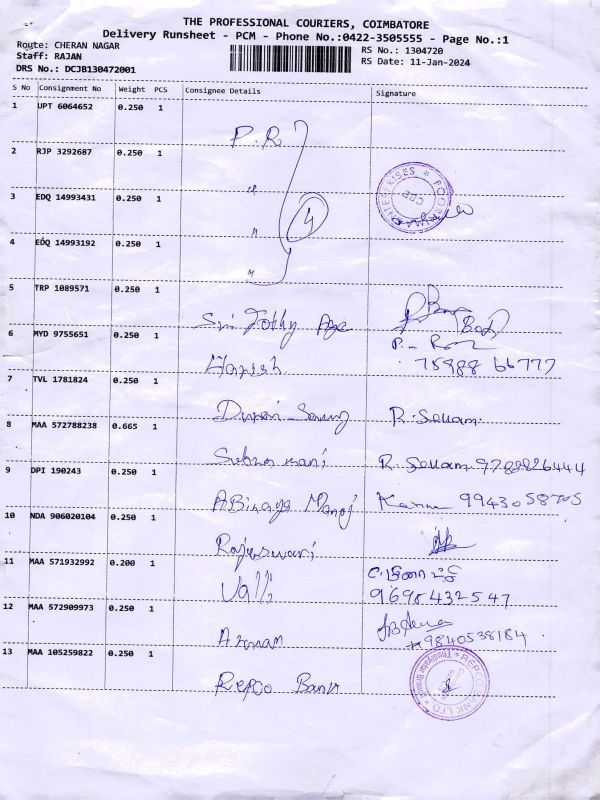 THE PROFESSIONAL COURIERS, COIMBATORE
Delivery Runsheet - PCM - Phone No.:0422-3505555 - Page No.:1
Route: CHERAN NAGAR
RS No.: 1304720
Staff: RAJAN
RS Date: 11-Jan-2024
DRS No.: DCJB130472001
S No Consignment No Weight PCS Consignee Details Signature
1 UPT 6064652 0.250 1
P.R.
2 RJP 3292687 0.250 1
3 EDQ 14993431 0.250 1
4
4 EDQ 14993192 0.250 1
5 TRP 1089571 0.250 1
Sri Jothy
6 MYD 9755651 0.250 1
Harish 75988 66777
7 TVL 1781824 0.250 1
R. Sellam.
8 MAA 572788238 0.665 1
Submamani R. Sellam. 9788826444
9 DPI 190243 0.250 1
Abinaya Manoj 9943058705
10 NDA 906020104 0.250 1
Rajeswari
11 MAA 571932992 0.200 1
Valli
9698432547
12 MAA 572909973 0.250 1
9840538184
13 MAA 105259822 0.250 1
Repco Bank
REPCO BANK LTD.